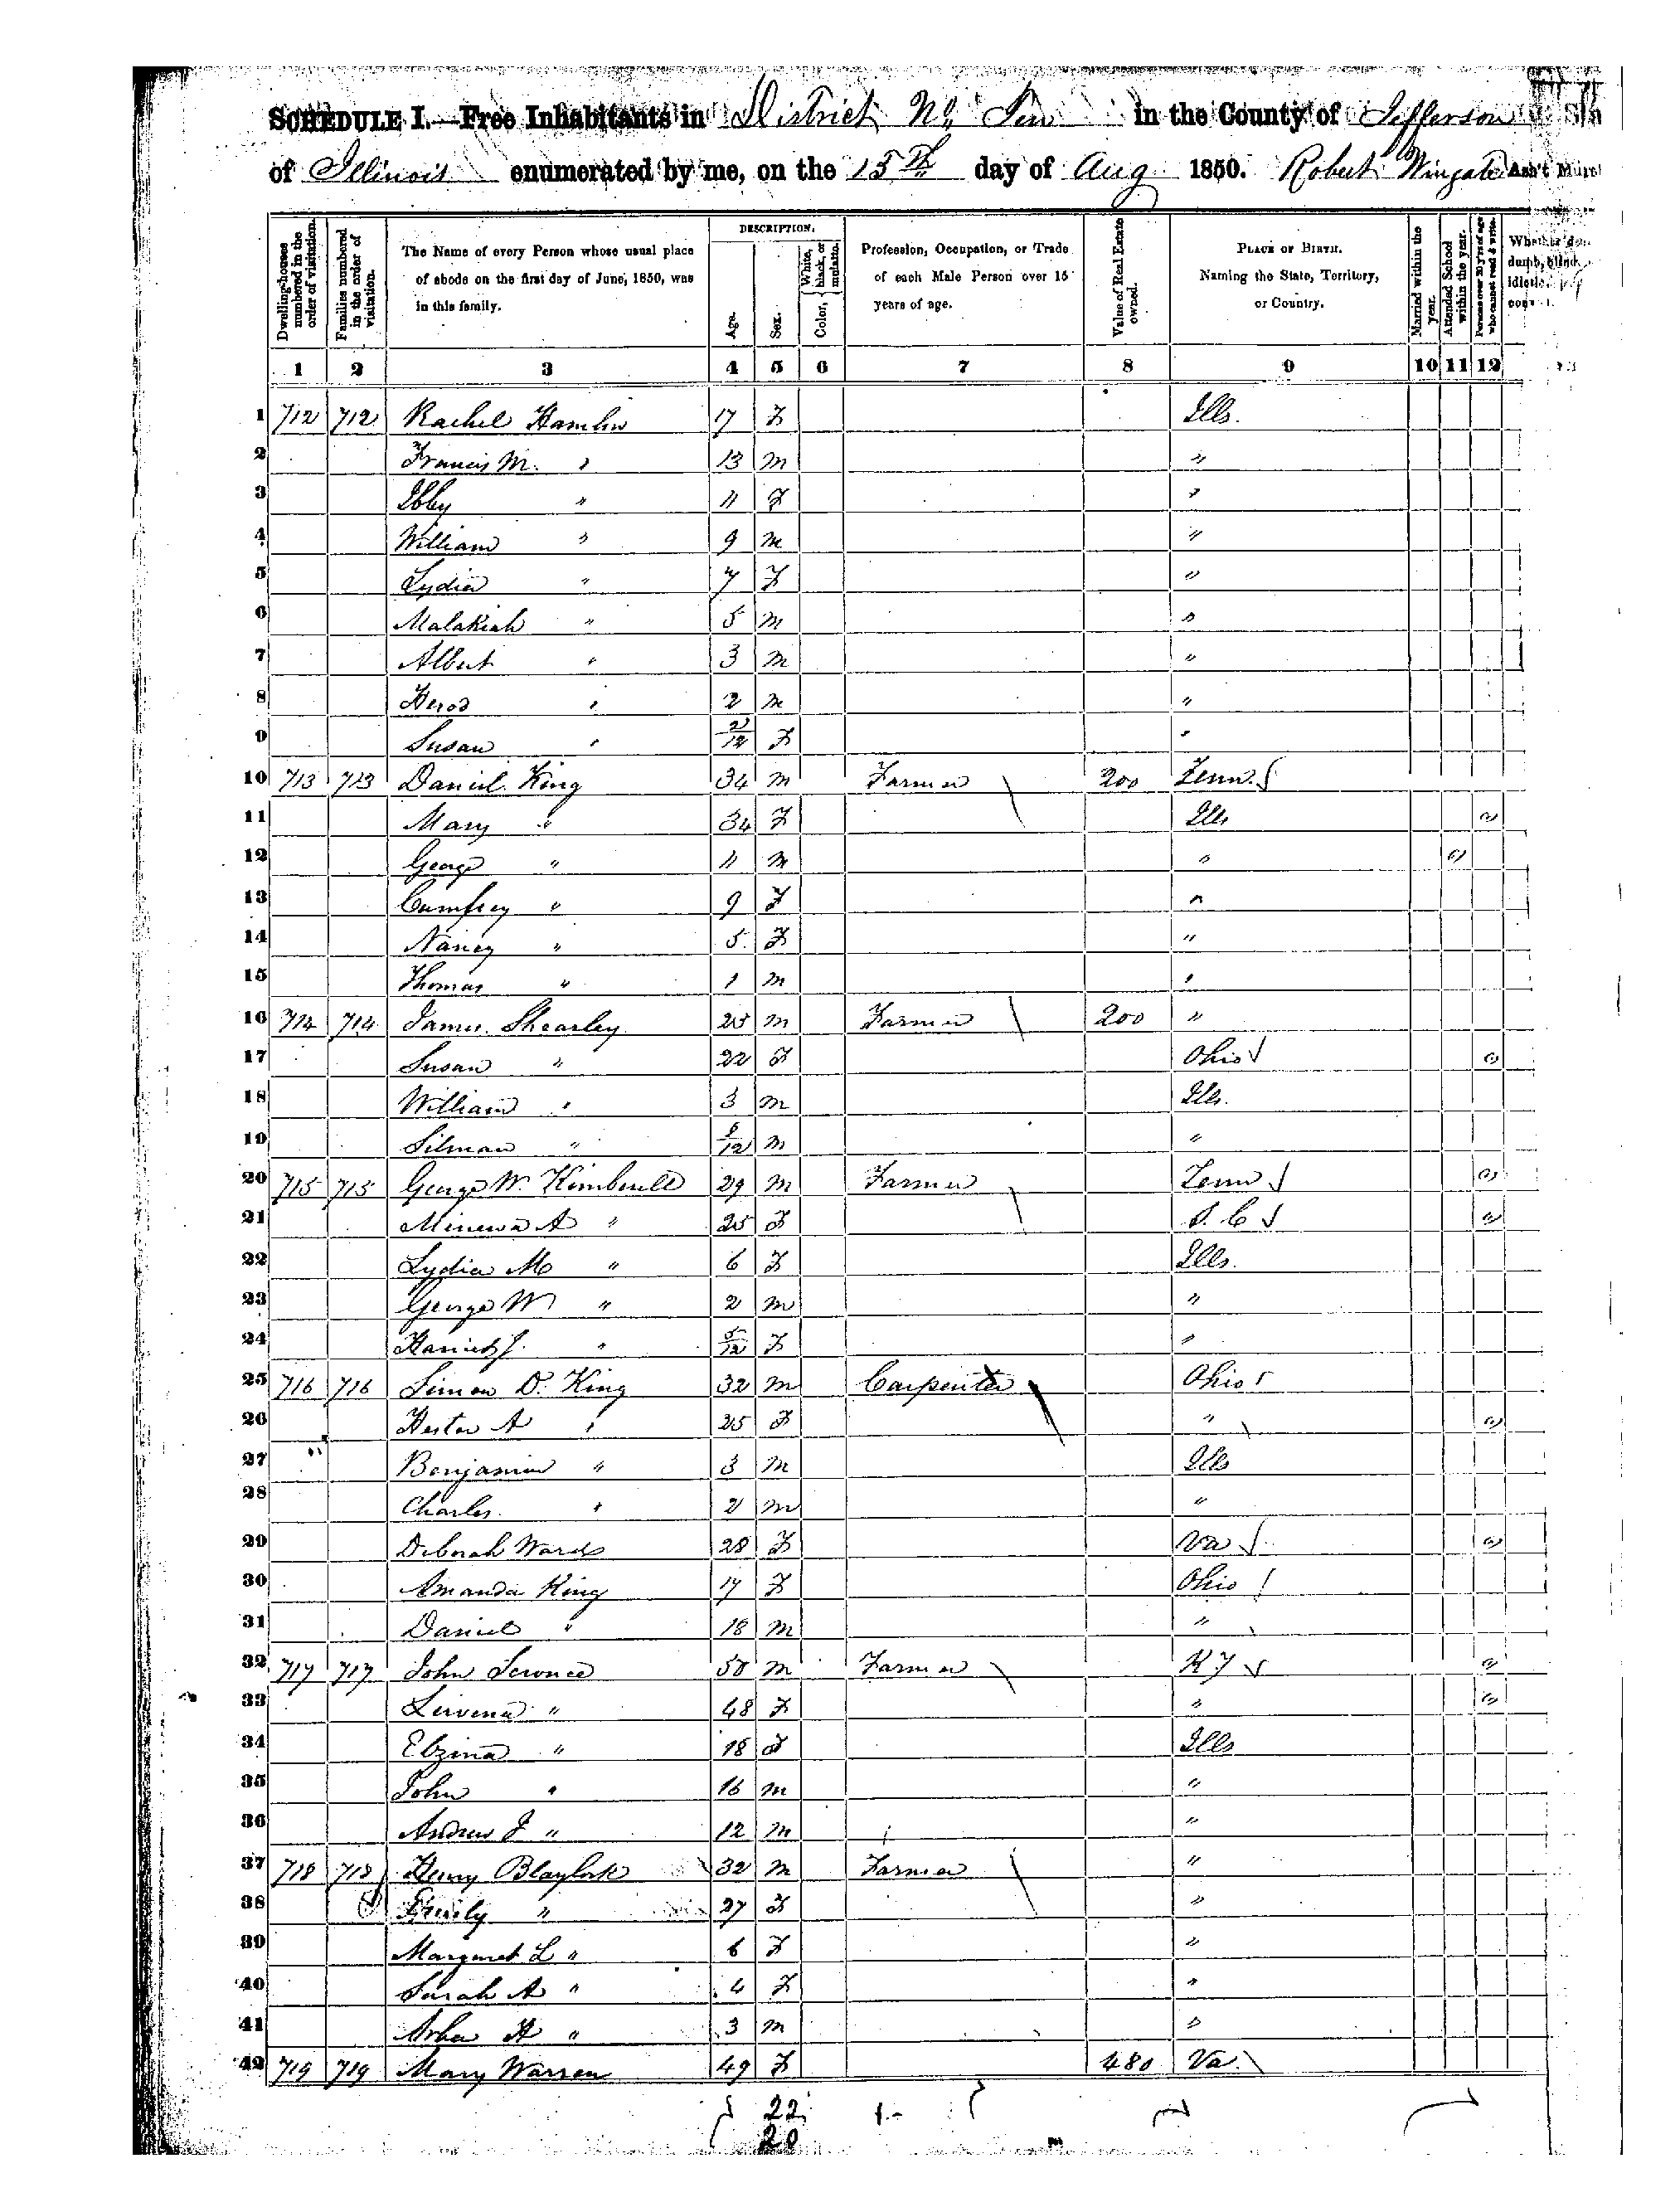 SCHEDULE I.—Free Inhabitants in District No. Ten in the County of Jefferson
of Illinois enumerated by me, on the 15th day of Aug 1850. Robert Wingate Ass't
DESCRIPTION.
Dwelling-houses numbered in the order of visitation.
Families numbered in the order of visitation.
The Name of every Person whose usual place of abode on the first day of June, 1850, was in this family.
Age.
Sex.
Color, White, black, or mulatto.
Profession, Occupation, or Trade of each Male Person over 15 years of age.
Value of Real Estate owned.
PLACE OF BIRTH. Naming the State, Territory, or Country.
Married within the year.
Attended School within the year.
Persons over 20 y'rs of age who cannot read & write.
1 2 3 4 5 6 7 8 9 10 11 12
1 712 712 Rachel Hamlin 17 F Ills.
2 Francis M. " 13 M "
3 Ibby " 11 F "
4 William " 9 M "
5 Lydia " 7 F "
6 Malakiah " 5 M "
7 Albert " 3 M "
8 Herod " 2 M "
9 Susan " 2/12 F "
10 713 713 Daniel King 34 M Farmer 200 Tenn.
11 Mary " 34 F Ills
12 George " 11 M "
13 Cumfrey " 9 F "
14 Nancy " 5 F "
15 Thomas " 1 M "
16 714 714 James Shearley 25 M Farmer 200 "
17 Susan " 22 F Ohio
18 William " 3 M Ills.
19 Silman " /12 M "
20 715 715 George W. Kimbrell 29 M Farmer Tenn
21 Minerva A " 25 F S. C
22 Lydia M " 6 F Ills.
23 George W " 2 M "
24 Harriet J. " 5/12 F "
25 716 716 Simon D. King 32 M Carpenter Ohio
26 Hester A " 25 F "
27 Benjamin " 3 M Ills
28 Charles " 2 M "
29 Deborah Wards 28 F Va
30 Amanda King 17 F Ohio
31 Daniel " 18 M "
32 717 717 John 50 M Farmer KY
33 " 48 F "
34 Elzina " 18 F Ills
35 John " 16 M "
36 Andrew J " 12 M "
37 718 718 Henry Blaylock 32 M Farmer "
38 Emily " 27 F "
39 Margaret L " 6 F "
40 Sarah A " 4 F "
41 " 3 M "
42 719 719 Mary Warren 49 F 480 Va.
22
20